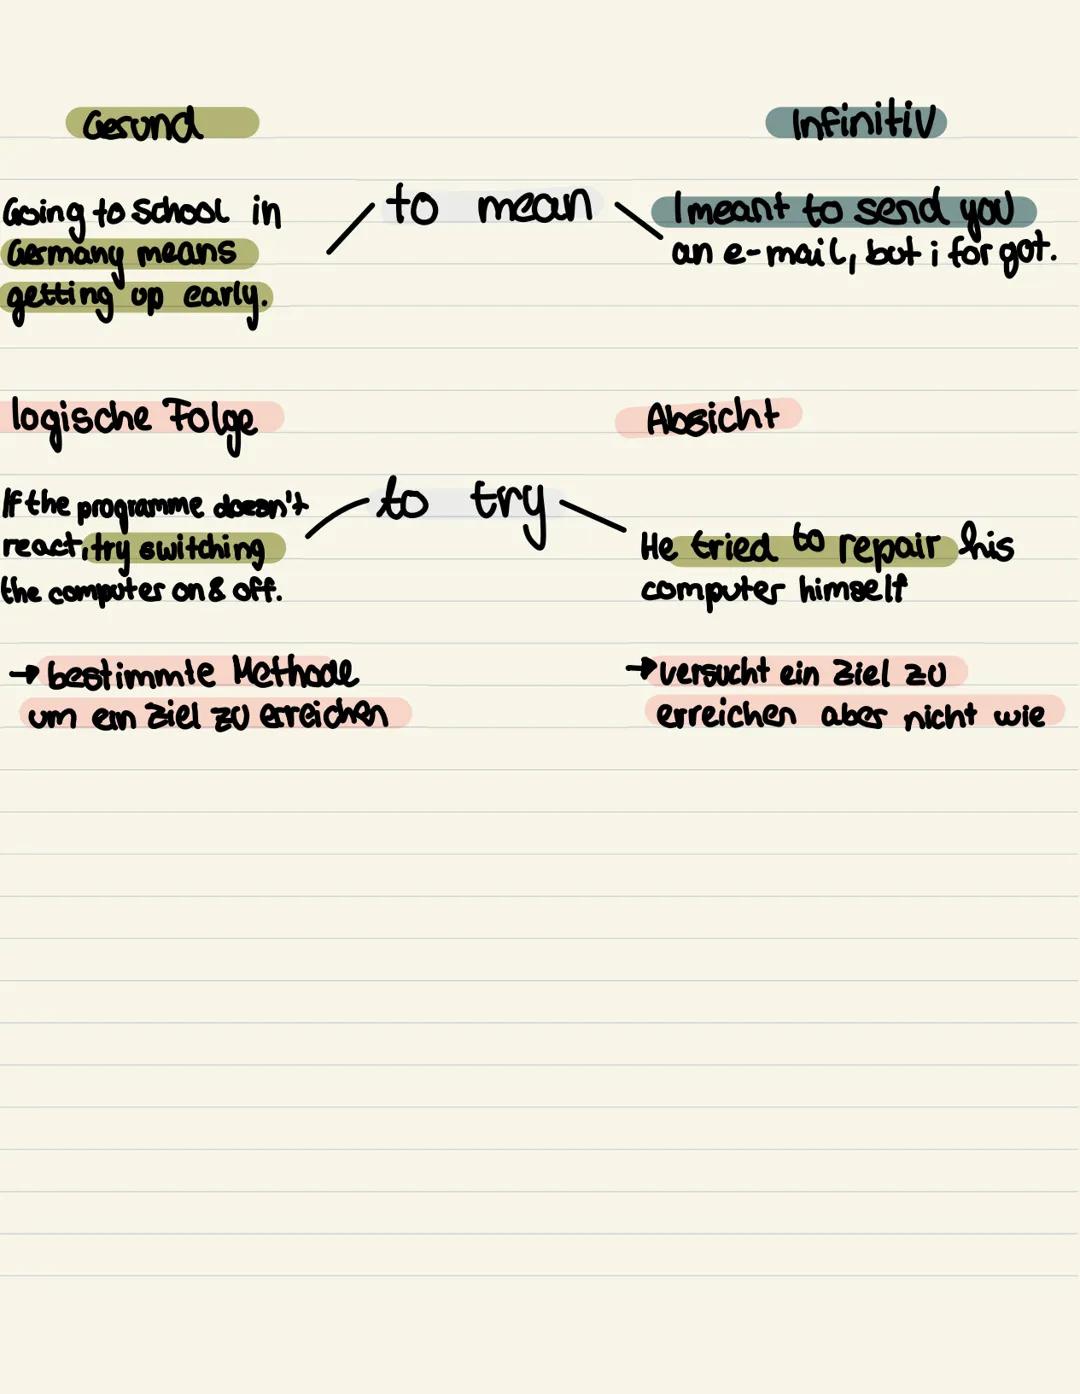 Gerund
Infinitiv
Going to school in
Germany means
getting up early.
to mean
I meant to send you
an e-mail, but i forgot.
logische Folge
Absicht
If the programme doesn't
react, try switching
the computer on & off.
to try
He tried to repair his
computer himself
→ bestimmte Methode
um ein Ziel zu erreichen
→ versucht ein Ziel zu
erreichen aber nicht wie